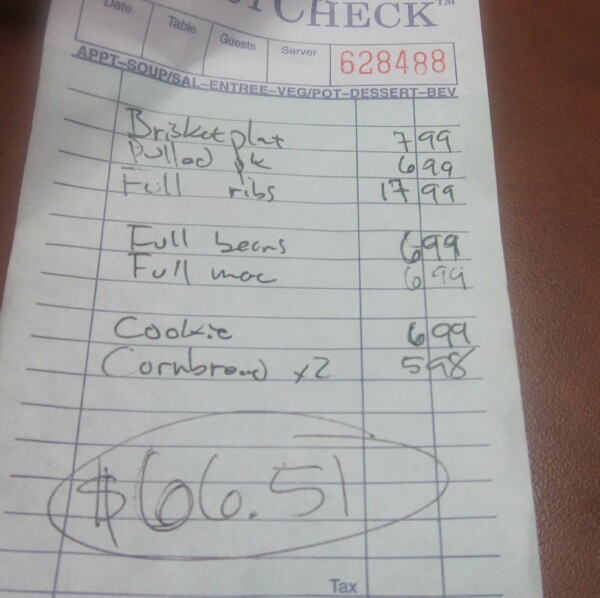 CHECK™
Date Table Guests Server 628488
APPT–SOUP/SAL–ENTREE–VEG/POT–DESSERT–BEV
Brisket plat 7 99
Pulled pk 6 99
Full ribs 17 99
Full beans 6 99
Full mac 6 99
Cookie 6 99
Cornbread x2 5 98
$66.51
Tax